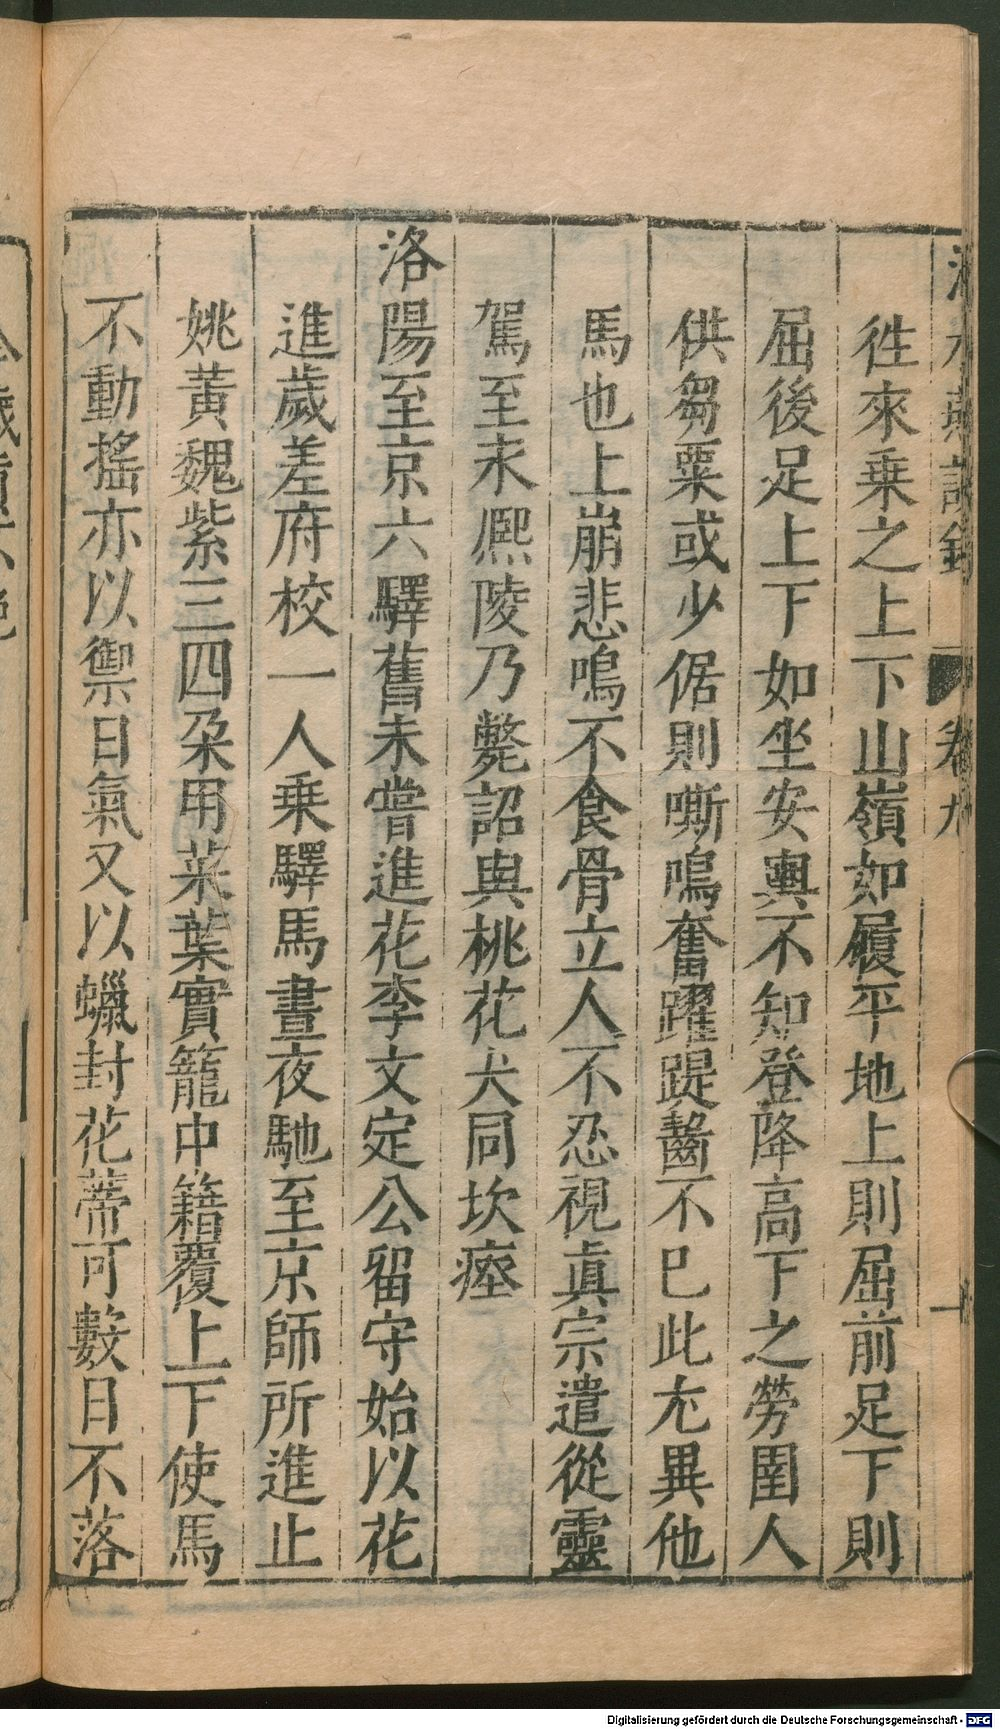 澠水燕談錄 卷九 十
徃來乗之上下山嶺如履平地上則屈前足下則
屈後足上下如坐安輿不知登降高下之勞圉人
供芻粟或少倨則嘶鳴奮躍踶齧不巳此尢異他
馬也上崩悲鳴不食骨立人不忍視眞宗遣從靈
駕至永熈陵乃斃詔與桃花犬同坎瘞
洛陽至京六驛舊未嘗進花李文定公留守始以花
進歲差府校一人乗驛馬晝夜馳至京師所進止
姚黃魏紫三四朶用菜葉實籠中籍覆上下使馬
不動搖亦以禦日氣又以蠟封花蒂可數日不落
Digitalisierung gefördert durch die Deutsche Forschungsgemeinschaft - DFG